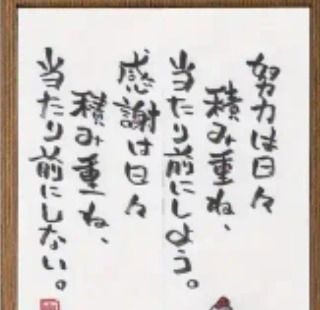 努力は日々
積み重ね、
当たり前にしよう。
感謝は日々
積み重ね、
当たり前にしない。